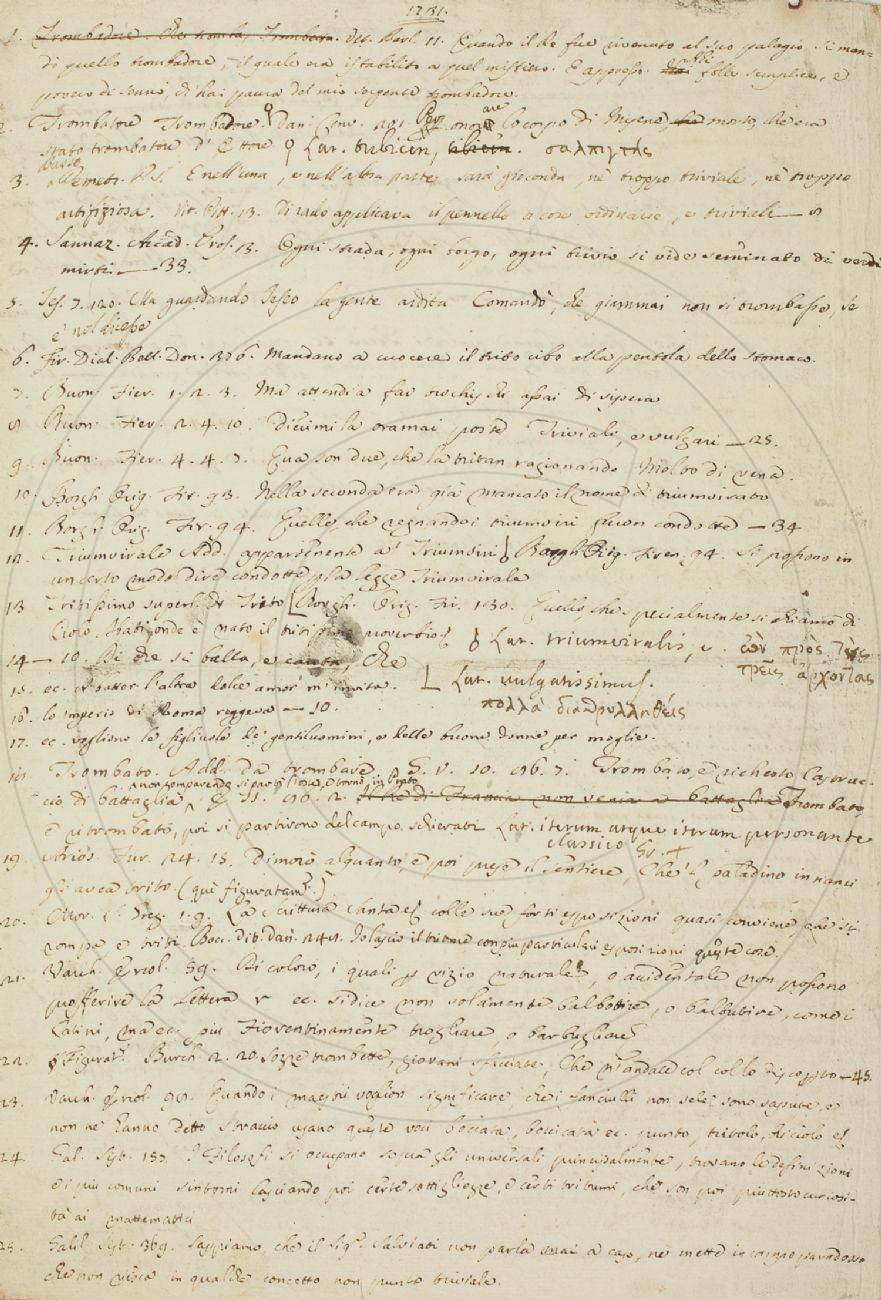 1731.
1. Trombadore. Che tromba, Trombetta. Vit. Barl. 11. Quando il Re fue rivenuto al suo palagio si man-
di quello trombadore, il quale era istabilito a quel mistiero. E appresso. folle semplice, e
povero di senno, di hai paura del mio sergente trombadore.
2. Trombatore Trombadore. Dan. Conv. 191 Per onorare lo corpo di Miseno, morto, che era
stato trombatore d' Ettore Lat. tubicen, σαλπιγτής
3. Demetr. P.S. E nell'una, e nell'altra parte sarà gioconda, nè troppo triviale, nè troppo
artifiziosa. Vit. Pitt. 13. Di rado applicava il pennello a cose ordinarie, e triviali — 8
4. Sannaz. Arcad. Pros. 13. Ogni strada, ogni borgo, ogni trivio si vide seminato di verdi
mirti. — 33.
5. Tes. 7. 120. Ma guardando Teseo la gente ardita Comandò, che giammai non si trombasse, se
e' nol dicesse
6. Fir. Dial. Bell. Don. 376. Mandano a cuocere il trito cibo alla pentola dello stomaco.
7. Buon. Fier. 1. 2. 3. Ma attendi a far trochisci assai di vipera
8 Buon. Fier. 2. 4. 10. Dicimila oramai poste Triviali, e vulgari — 25.
9. Buon. Fier. 4. 4. 7. Qua son due, che la tritan ragionando Molto di vena.
10. Borgh. Orig. Fir. 93. Nella seconda era già mancato il nome di triumvirato
11. Borgh. Orig. Fir. 94. Quelle che regnando i triumviri furon condotte — 34
12. Triumvirale Add. appartenente a' Triumviri Borgh. Orig. Firen. 94. Si possono in
un certo modo dire condotte p la legge Triumvirale
13 Tritissimo superl. di Trito Borgh. Orig. Fir. 130. Quello, che specialmente si chiamò di
Cielo. onde è nato il proverbio Lat. triumviralis, e. ὧν πρὸς τοὺς
14 — 10. Di che si balla, e canta, che τρεῖς ἄρχοντας
15. ec. ec. l'altra dolce amor m'invita. Lat. vulgatissimus.
16. lo imperio di Roma reggeva — 10. πολλὰ διαθρυλληθείς
17. ec. vogliono le figliuole de' gentiluomini, e delle buone donne per moglie.
18. Trombato. Add. da trombare G. V. 10. 96. 7. Trombato, e richesto Castruc-
cio di battaglia, non comparendo si partì l'oste, e tornò in Prato. E 11. 96. 2. Il Re di Francia non venia a battaglia Trombato,
e ritrombato, poi si partirono del campo schierati Lat. iterum atque iterum personante
classico Gr. +
19. Arios. Fur. 24. 15. Dimorò alquanto, e poi prese il sentiere, Che 'l paladino innanzi
gli avea trito (quì figuratam.)
20. Mor. S. Greg. 1. 9. La Scrittura Santa colle sue forti esposizioni quasi conviene, che si
rompa e triti. Bocc. Vit. Dan. 244. Io lascio il tritare con più particulari esposizioni queste cose.
21. Varch. Ercol. 59. Di coloro, i quali p vizio naturale, o accidentale non possono
profferire la lettera r ec. si dice non solamente balbottire, o balbutire, come i
Latini, ma ec. più Fiorentinamente trogliare, o barbugliare
22. Figurat. Burch. 2. 20. Sozze trombette, giovani sfacciate, Che n'andate col collo discoperto — 45.
23. Varch. Ercol. 98. Quando i maestri voglion significare, che i fanciulli non sele sono sapute, e
non ne hanno detto straccio usano queste voci boccata, boccicata ec. punto, tritolo, briciolo
24. Gal. Sist. 157. I Filosofi si occupano sopra gli universali principalmente, trovano le definizioni
e i più comuni sintomi lasciando poi certe sottigliezze, e certi tritumi, che son poi piuttosto curiosi-
tà ai mattematici
25. Galil. Sist. 369. Sappiamo, che il Sig. Salviati non parla mai a caso, nè mette in campo paradosso
che non riesca in qualche concetto non punto triviale.